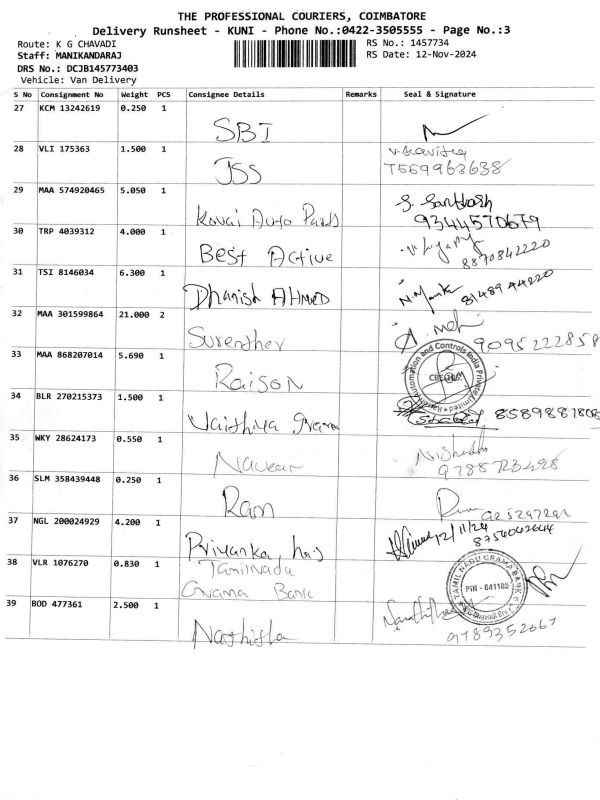 THE PROFESSIONAL COURIERS, COIMBATORE
Delivery Runsheet - KUNI - Phone No.:0422-3505555 - Page No.:3
Route: K G CHAVADI
RS No.: 1457734
Staff: MANIKANDARAJ
RS Date: 12-Nov-2024
DRS No.: DCJB145773403
Vehicle: Van Delivery
S No Consignment No Weight PCS Consignee Details Remarks Seal & Signature
27 KCM 13242619 0.250 1
SBI
28 VLI 175363 1.500 1
JSS
7559963638
29 MAA 574920465 5.050 1
Kovai Auto Parts
S. Santhosh
9344570679
30 TRP 4039312 4.000 1
Best Active
8870842220
31 TSI 8146034 6.300 1
Dhanish AHMED
8148944220
32 MAA 301599864 21.000 2
Surenther
9095222858
33 MAA 868207014 5.690 1
Raison
Automation and Controls India Private Limited
34 BLR 270215373 1.500 1
Vaithiya
8589887808
35 WKY 28624173 0.550 1
Naveen
9788723498
36 SLM 358439448 0.250 1
Ram
37 NGL 200024929 4.200 1
Priyanka,
12/11/24
8754042644
38 VLR 1076270 0.830 1
Tamilnadu
Grama Bank
TAMIL NADU GRAMA BANK
PIN - 641105
39 BOD 477361 2.500 1
Nathisha
9789352667